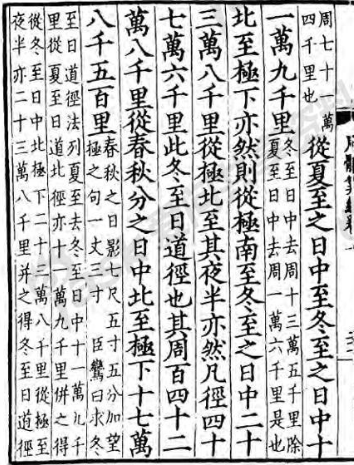 周七十一萬
四千里也
從夏至之日中至冬至之日中十
一萬九千里
冬至日中去周十三萬五千里除
夏至日中去周一萬六千里是也
北至極下亦然則從極南至冬至之日中二十
三萬八千里從極北至其夜半亦然凡徑四十
七萬六千里此冬至日道徑也其周百四十二
萬八千里從春秋分之日中北至極下十七萬
八千五百里
春秋之日影七尺五寸五分加望
極之句一丈三寸 臣鸞曰求冬
至日道徑法列夏至去冬至日中十一萬九千
里從夏至日道北徑亦十一萬九千里併之得
從冬至日中北極下二十三萬八千里從極至
夜半亦二十三萬八千里并之得冬至日道徑